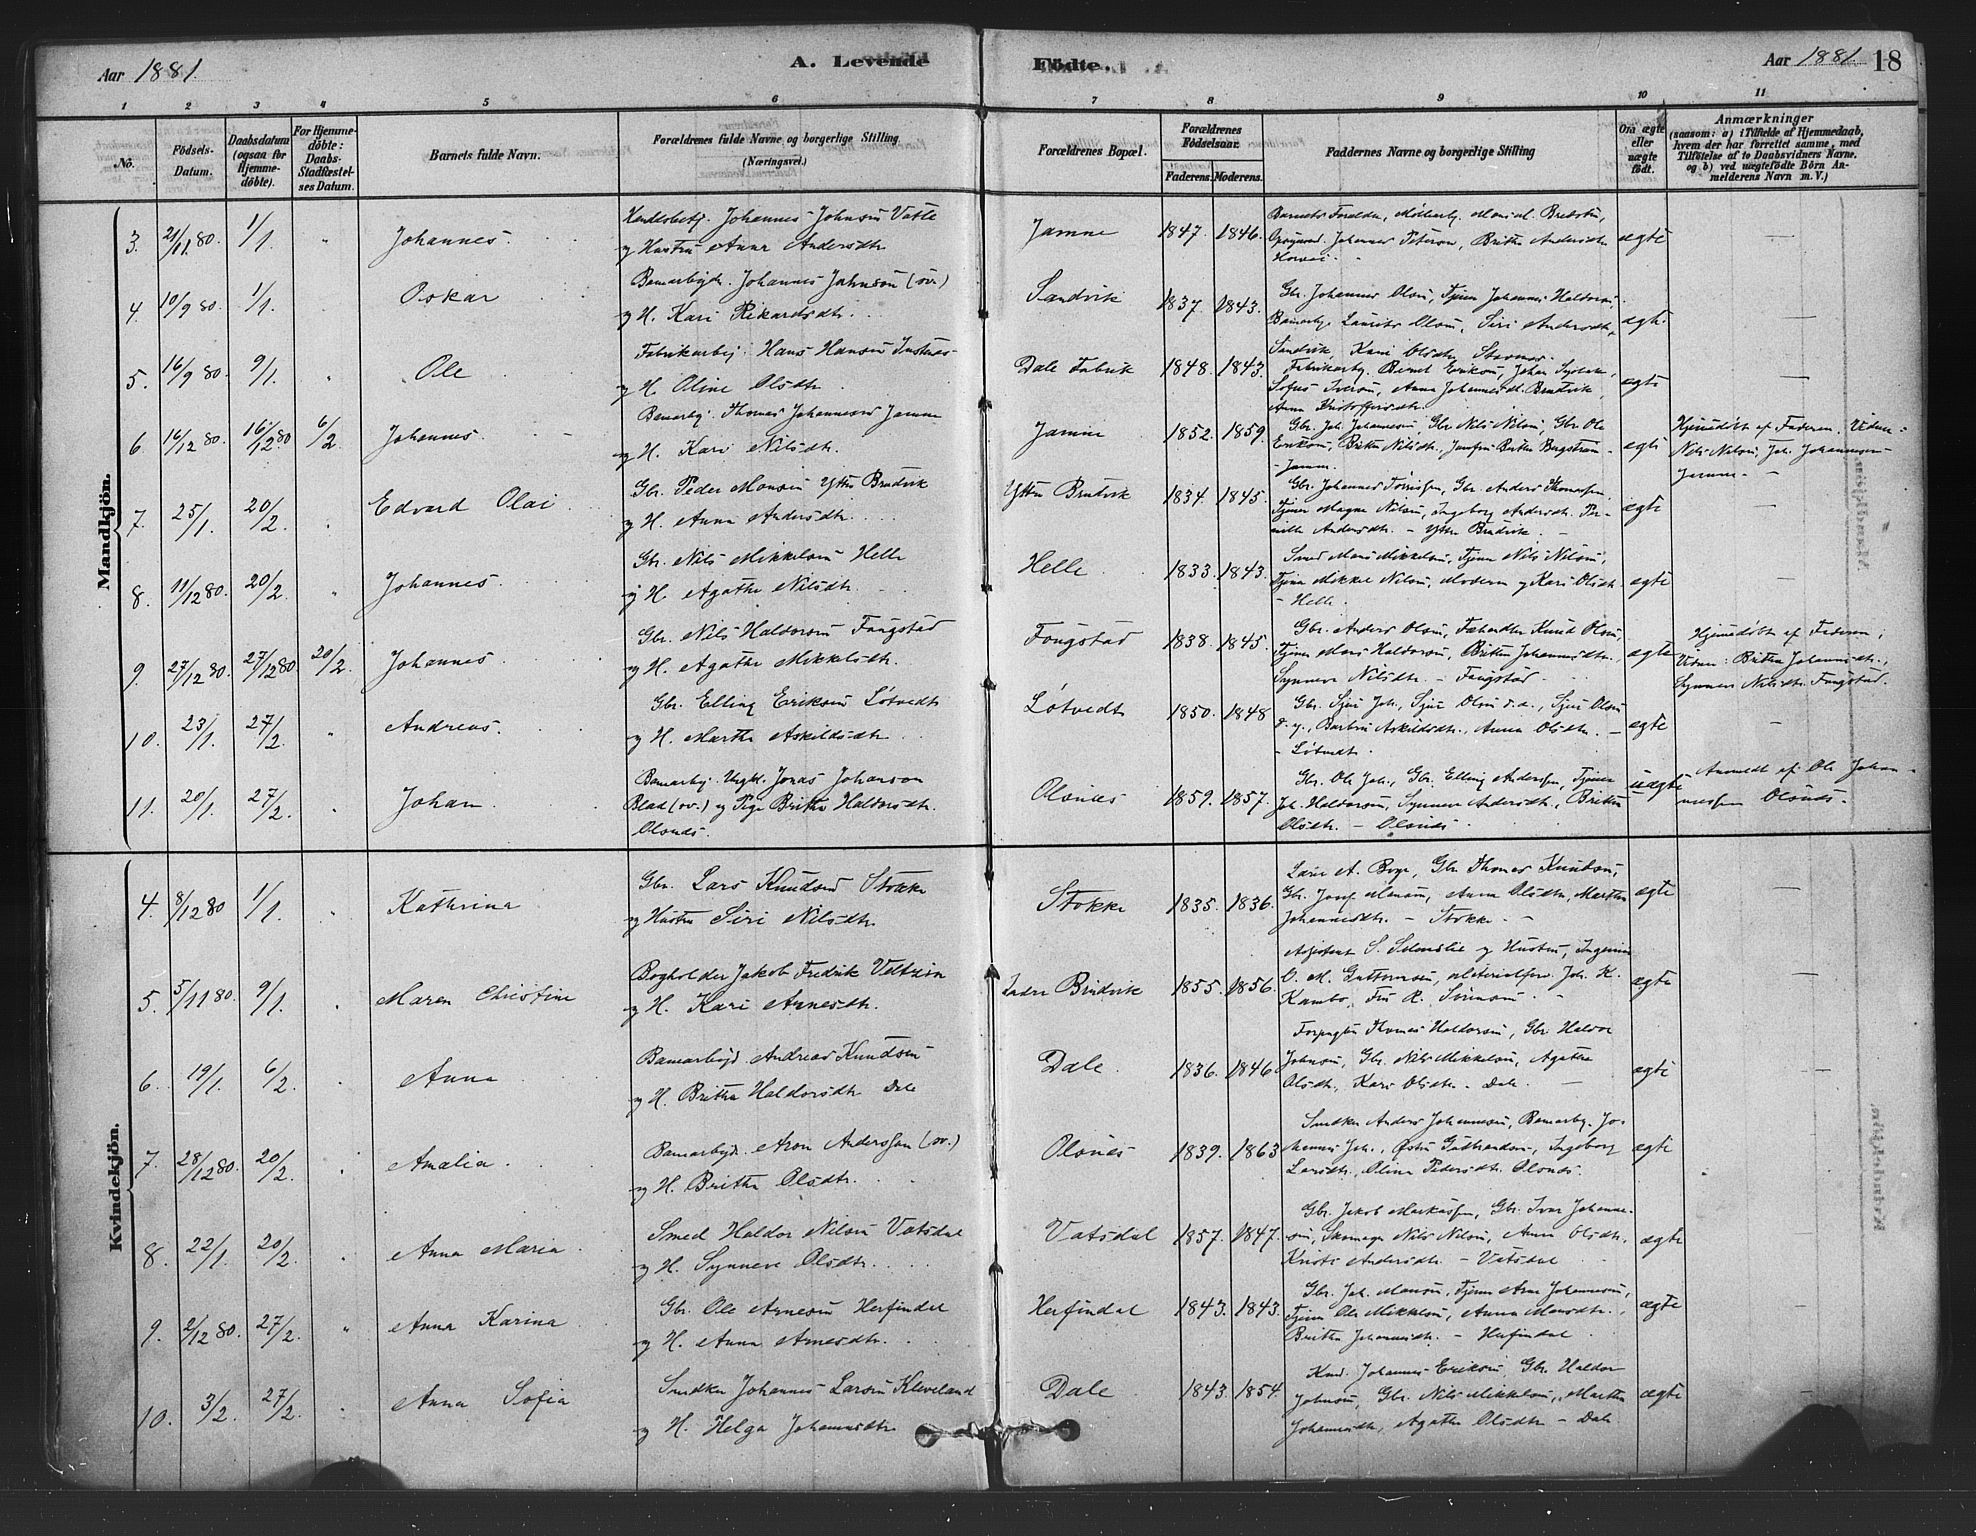 Aar 1881.
A. Levende
Födte.
Aar 1881. 18
1 2 3 4 5 6 7 8 9 10 11
No.
Födsels-
Datum.
Daabsdatum
(ogsaa for
Hjemme-
döbte).
For Hjemme-
döbte:
Daabs-
Stadfæstel-
ses Datum.
Barnets fulde Navn.
Forældrenes fulde Navne og borgerlige Stilling
(Næringsvei.)
Forældrenes Bopæl.
Forældrenes
Födselsaar.
Faderens. Moderens.
Faddernes Navne og borgerlige Stilling
Om ægte
eller
uægte
födt.
Anmærkninger
(saasom: a) i Tilfælde af Hjemmedaab,
hvem der har forrettet samme, med
Tilföielse af to Daabsvidners Navne,
og b) ved uægtefödte Börn An-
melderens Navn m. V.)
Mandkjön.
3. 21/11 80. 1/1. " Johannes.
Johannes Johnsen Vatle
og Hustru Anna Andersdtr.
Jamne 1847. 1846.
Johannes Peterson, Britha Andersdtr.
ægte —
4. 10/9 80. 1/1. Oskar
Banearbejdr. Johannes Johnson (sv.)
og H. Kari Rikardsdtr.
Sandvik 1837. 1843.
Gbr. Johannes Olsen, Tjener Johannes Haldorsen,
Laurits Olsen, Siri Andersdtr.
Sandvik, Kari Olsdtr.
ægte —
5. 16/9 80. 9/1. " Ole
Fabrikarbej. Hans Hansen
og H. Oline Olsdtr.
Dale Fabrik 1848. 1843.
Fabrikarbj. Erikson, Johan
Sofus Iverson, Anna Johannesdtr. Brudvik,
Anna Kristoffersdtr.
ægte —
6. 16/12 80. 16/12 80 6/2. Johannes.
Banearbj. Thomas Johannesen Jamne
og H. Kari Nilsdtr.
Jamne 1852. 1859.
Gbr. Joh. Johannesen, Gbr. Nils Nilsen, Gbr. Ole
Erikson, Britha Nilsdtr., Britha Bergstrøm
— Jamne.
ægte
Hjemmedøbt af Faderen. Vidne:
Nils Nilsen, Joh. Johannessen
Jamne —
7. 25/1. 20/2. Edvard Olai
Gbr. Peder Monsen Yttre Brudvik
og H. Anna Andersdtr.
Yttre Brudvik 1834. 1845.
Gbr. Johannes, Gbr. Anders Thomassen,
Tjener Magne Nilsen, Ingeborg Andersdtr. Per-
nille Andersdtr. — Yttre Brudvik. —
ægte —
8. 11/12 80. 20/2. " Johannes.
Gbr. Nils Mikkelsen Helle
og H. Agatha Nilsdtr.
Helle 1833. 1843.
Smed Mons Mikkelsen, Tjener Nils Nilsen,
Tjener Mikkel Nilsen, Moderen og Kari Olsdtr.
— Helle.
ægte —
9. 27/12 80. 27/12 80. 20/2. Johannes.
Gbr. Nils Haldorsen Fougstad
og H. Agatha Mikkelsdtr.
Fougstad 1838. 1845.
Gbr. Anders Olsen, Knud Olsen,
Tjener Mons Haldorsen, Britha Johannesdtr.,
Synneve Nilsdtr. — Fougstad.
ægte
Hjemmedøbt af Faderen;
Vidner: Britha Johannesdtr.,
Synneve Nilsdtr. Fougstad.
10. 23/1. 27/2. " Andreas.
Gbr. Elling Eriksen Løtvedt
og H. Martha Askildsdtr.
Løtvedt 1850. 1848
Gbr. Sjur Joh., Sjur Olsen d. æ., Sjur Olsen
d. y., Barbru Askildsdtr., Anna Olsdtr. —
— Løtvedt.
ægte —
11. 20/1. 27/2. " Johan.
Banearbj. Ungkl. Jonas Johanson
Blad (sv.) og Pige Britha Haldorsdtr.
Olsnes.
Olsnes 1859. 1857.
Gbr. Ole Joh., Gbr. Elling Anderssen, Tjener
Joh. Haldorsen, Synneve Andersdtr., Britha
Olsdtr. — Olsnes.
uægte
Anmeldt af Ole Johan-
nessen Olsnes.
Kvindekjön.
4. 8/12 80 1/1. " Kathrina
Gbr. Lars Knudsen Stokke
og Hustru Siri Nilsdtr.
Stokke 1835. 1836.
Lærer A. Boge, Gbr. Thomas Knudsen,
Gbr. Josef Monsen, Anna Olsdtr., Martha
Johannesdtr. — Stokke. —
ægte —
5. 5/11 80. 9/1. " Maren Christine
Bogholder Jakob Fredrik Veltzin
og H. Kari Arnesdtr.
Indre Brudvik 1855. 1856.
Assistent S. Selmslie og Hustru, Ingeniør
O. M. Guttormsen, Materialforv. Joh. K.
Kambo, Fru R. —
ægte —
6. 19/1. 6/2. " Anna
Banearbejd. Andreas Knudsen
og H. Britha Haldorsdtr. Dale
Dale. 1836. 1846
Thomas Haldorsen, Gbr. Haldor
Johnsen, Gbr. Nils Mikkelsen, Agatha
Olsdtr., Kari Olsdtr. — Dale. —
ægte
7. 28/12 80. 20/2. " Amalia.
Banearbejd. Aron Anderssen (sv.)
og H. Britha Olsdtr.
Olsnes 1839. 1863
Snedker Anders Johannesen, Banearbj. Jo-
hannes Joh., Ingeborg
Larsdtr., Olina Pedersdtr. Olsnes.
ægte
8. 22/1. 20/2. " Anna Maria
Smed Haldor Nilsen Vatsdal
og H. Synneve Olsdtr.
Vatsdal 1857. 1847.
Gbr. Jakob Markussen, Gbr. Ivar Johanne-
sen, Skomager Nils Nilsen, Anna Olsdtr.,
Andersdtr. — Vatsdal
ægte
9. 2/12 80. 27/2. " Anna Karina
Gbr. Ole Arnesen Herfindal
og H. Anna Arnesdtr.
Herfindal 1843. 1843.
Gbr. Joh. Monsen, Tjener Arne Johannesen,
Tjener Ole Mikkelsen, Anna Monsdtr.,
Britha Johannesdtr. — Herfindal
ægte
10. 3/2. 27/2. " Anna Sofia
Snedker Johannes Larsen Kleveland
og H. Helga Johannesdtr.
Dale 1843. 1854.
Johannes Eriksen, Gbr. Haldor
Johnsen, Gbr. Nils Mikkelsen, Martha
Johannesdtr., Agatha Olsdtr. — Dale
ægte